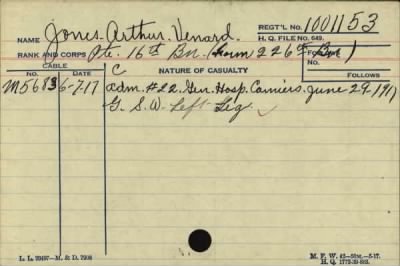 NAME Jones. Arthur. Venard. REGT'L No. 1001153
H. Q. FILE No. 649.
RANK AND CORPS Pte. 16th Bn. (from 226th Bn)
CABLE
No. DATE NATURE OF CASUALTY No. FOLLOWS
FOLLOWS
M5683 6-7-17 C adm. #22 Gen. Hosp. Camiers. June 29 1917
G. S. W. Left Leg. ✓
L. L. 70497—M. & D. 7908
M. F. W. 42—50M.—5-17.
H. Q. 1772-39-893.